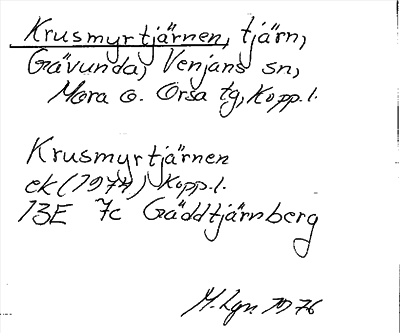 Krusmyrtjärnen, tjärn,
Gävunda, Venjans sn,
Mora o. Orsa tg, Kopp.l.
Krusmyrtjärnen
ek (1974) Kopp.l.
13E 7c Gäddtjärnberg
M. Lgn 1976